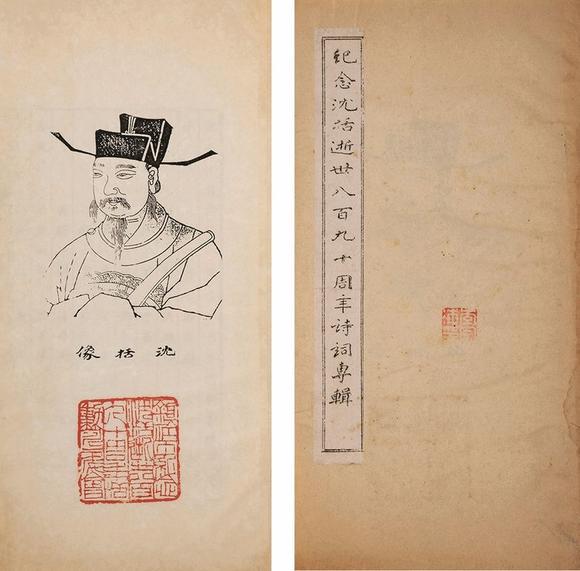 沈括像
紀念沈括逝世八百九十周年詩詞專輯